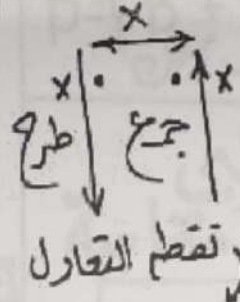 x
x x
طرح جمع
نقطة التعادل